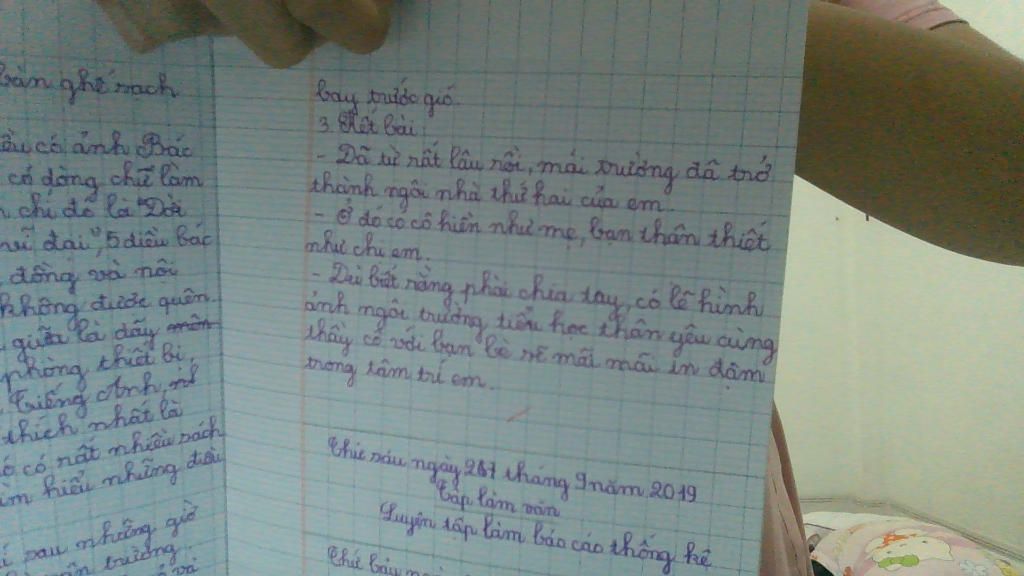 bàn ghế sach
ều có ảnh Bác
có dòng chữ làm
chỉ đỏ là "Dời
vĩ đại", 5 điều Bác
đồng và nội
không được quên.
giữa là dãy
phòng thiết bị,
Tiếng Anh,
thích nhất là
ó có rất nhiều sách
ìm hiểu những điều
sau những giờ
trường
bay trước gió.
3. Kết bài:
- Dã từ rất lâu rồi, mái trường đã trở
thành ngôi nhà thứ hai của em.
- Ở đó có cô hiền như mẹ, bạn thân thiết
như chị em.
- Dù biết rằng phải chia tay, có lẽ hình
ảnh ngôi trường tiểu học thân yêu cùng
thầy cô với bạn bè sẽ mãi mãi in đậm
trong tâm trí em.
Thứ sáu ngày tháng 9 năm 2019
Tập làm văn
Luyện tập làm báo cáo thống kê
Thứ bảy